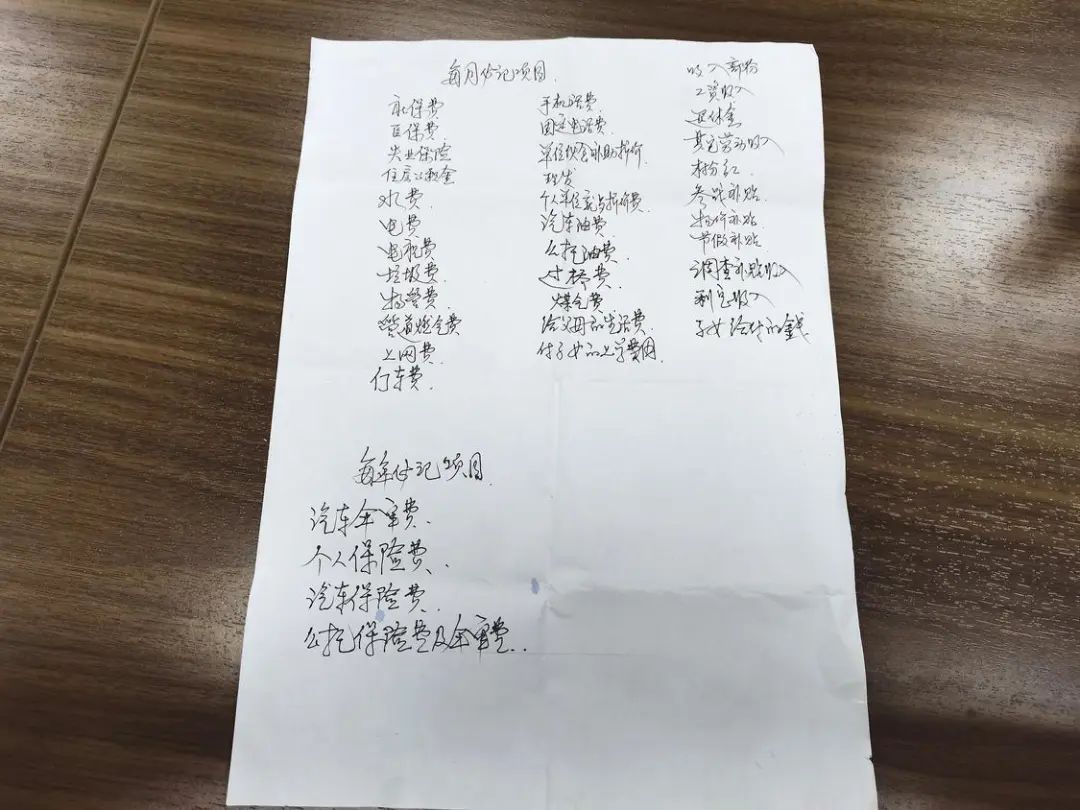 每月份记项目
社保费
医保费
失业保险
住房公积金
水费
电费
电视费
垃圾费
物管费
管道燃气费
上网费
行车费
手机话费
固定电话费
单位伙食补助折价
理发
汽车油费
公托油费
过桥费
煤气费
给父母的生活费
付子女的上学费用
收入部份
工资收入
退休金
其它劳动收入
村分红
参战补贴
物价补贴
节假补贴
调查补贴收入
利息收入
子女给付的金钱
每年份记项目
汽车年审费
个人保险费
汽车保险费
公托保险费及年审费